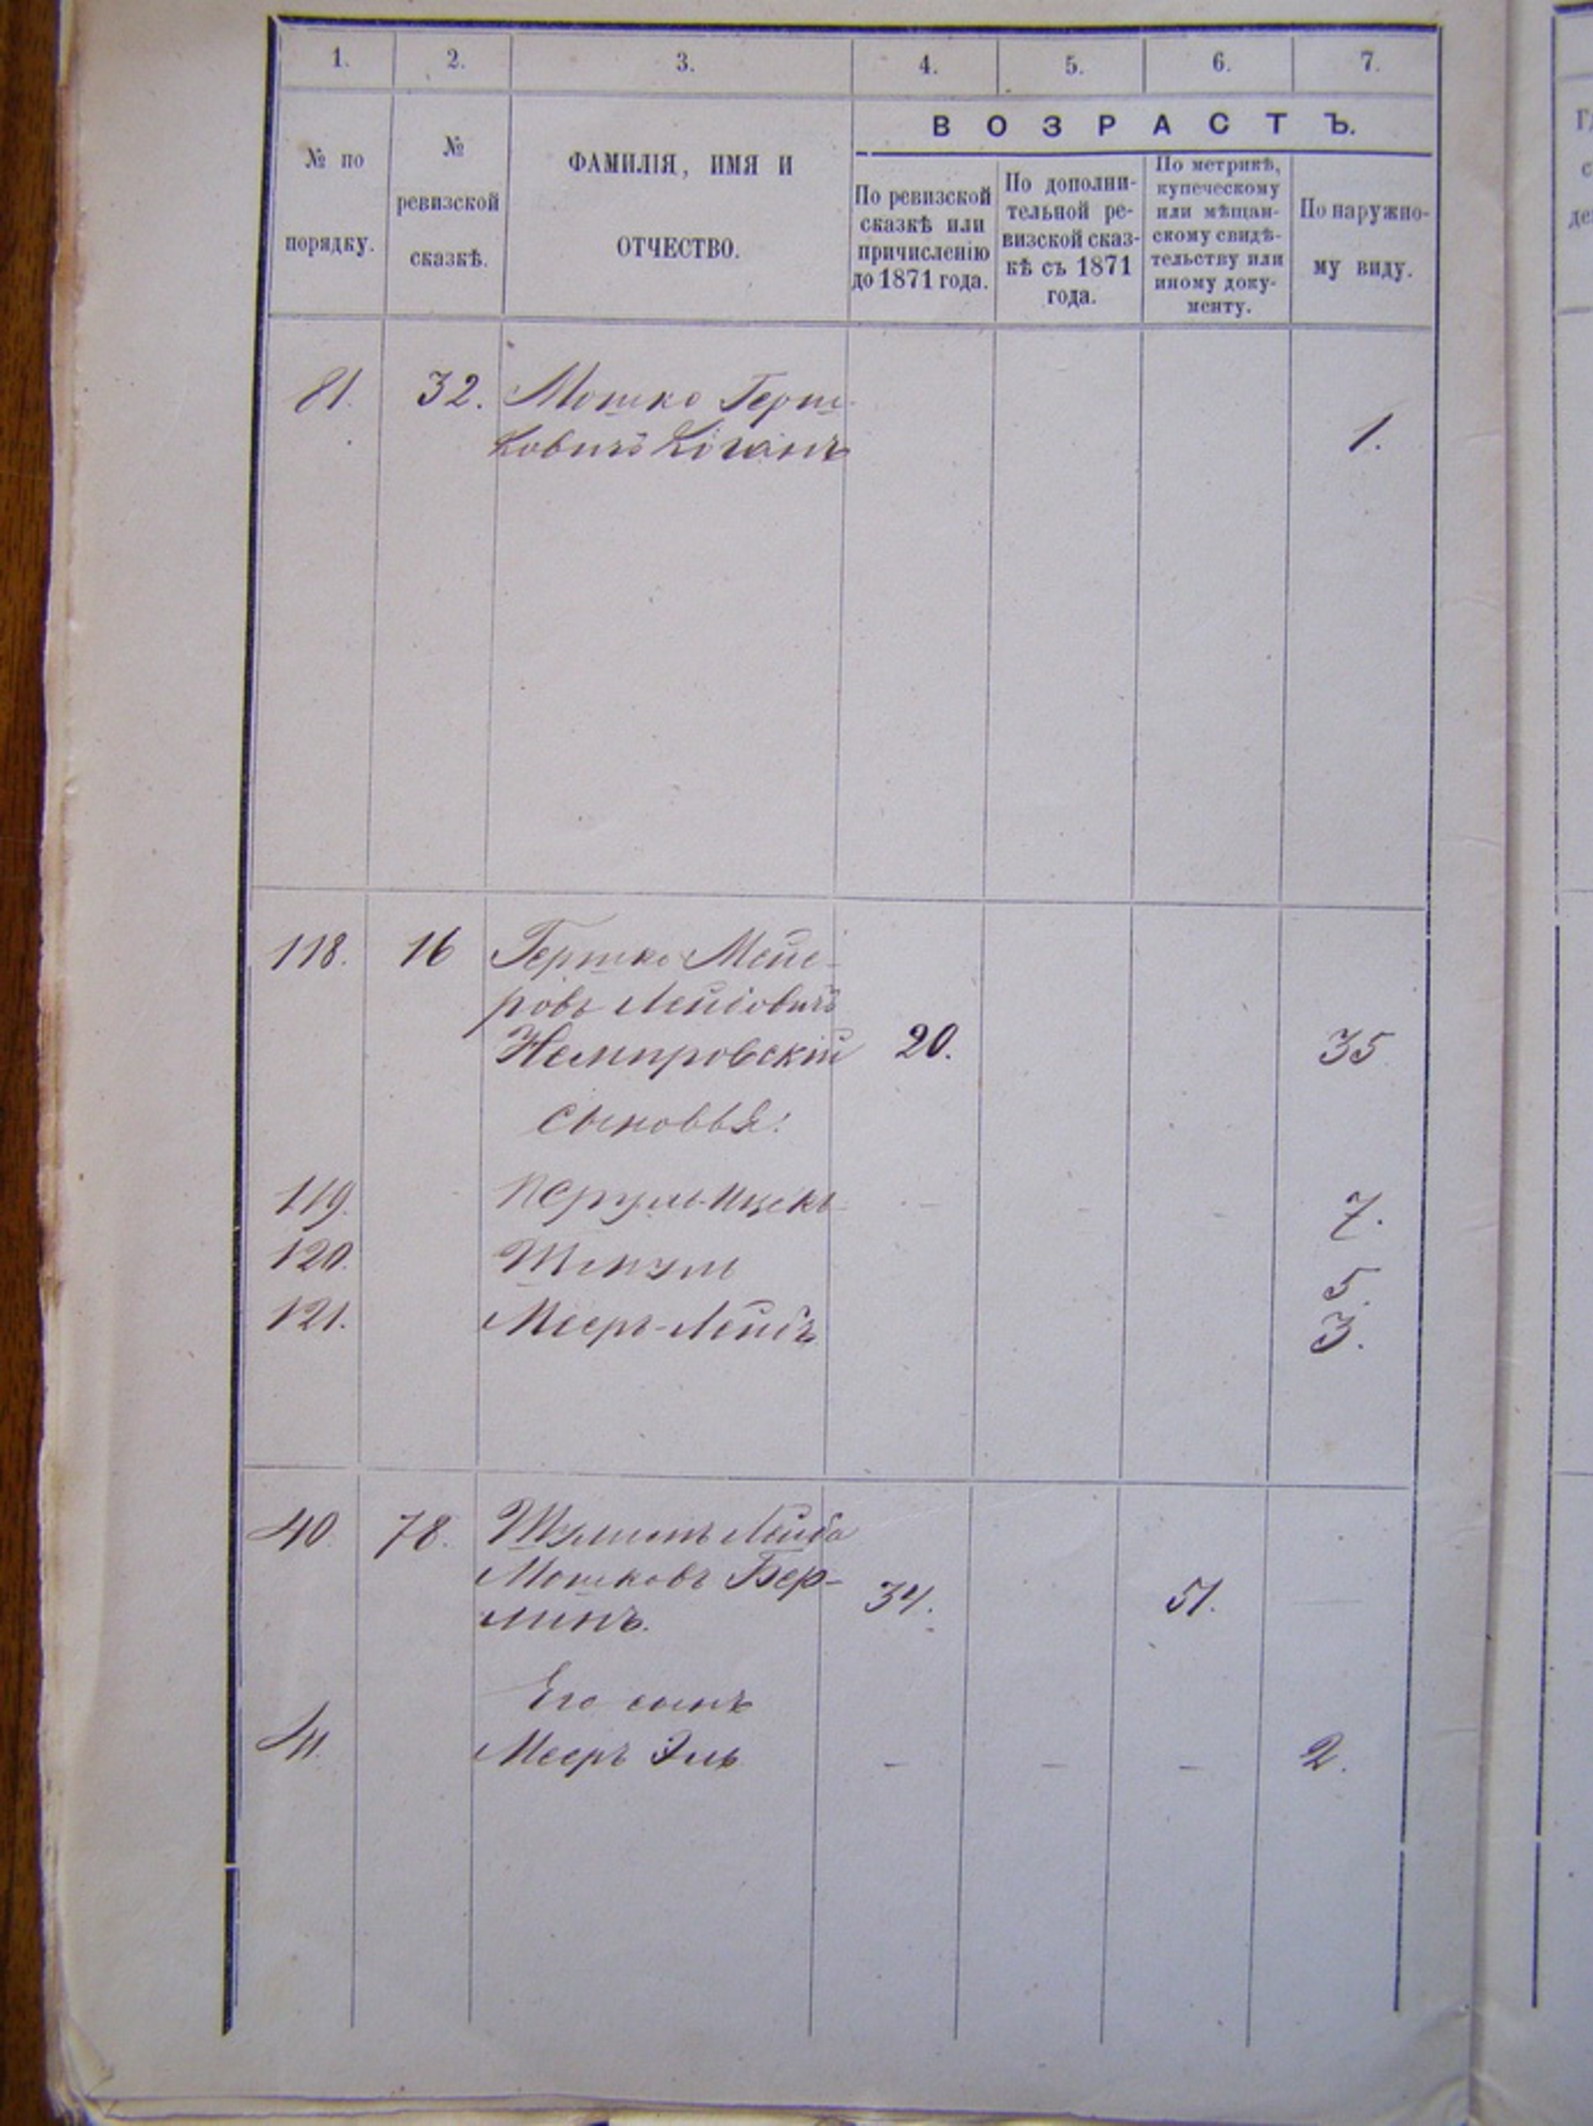 1. 2. 3. 4. 5. 6. 7.
№ по
порядку.
№
ревизской
сказкѣ.
ФАМИЛІЯ, ИМЯ И
ОТЧЕСТВО.
ВОЗРАСТЪ.
По ревизской
сказкѣ или
причисленію
до 1871 года.
По дополни-
тельной ре-
визской сказ-
кѣ съ 1871
года.
По метрикѣ,
купеческому
или мѣщан-
скому свидѣ-
тельству или
иному доку-
менту.
По наружно-
му виду.
81. 32. Мошко Герш-
ковичъ Коганъ 1.
118. 16 Гершко Мейе-
ровъ Лейбовичъ
Немировскій 20. 35
сыновья:
119. Ицекъ 7.
120. Шмуль 5.
121. Мееръ-Лейбъ 3.
40. 78. Лейба
Мошковъ Бер-
линъ. 34. 51.
Его сынъ
41. Мееръ Эль - - - 2.